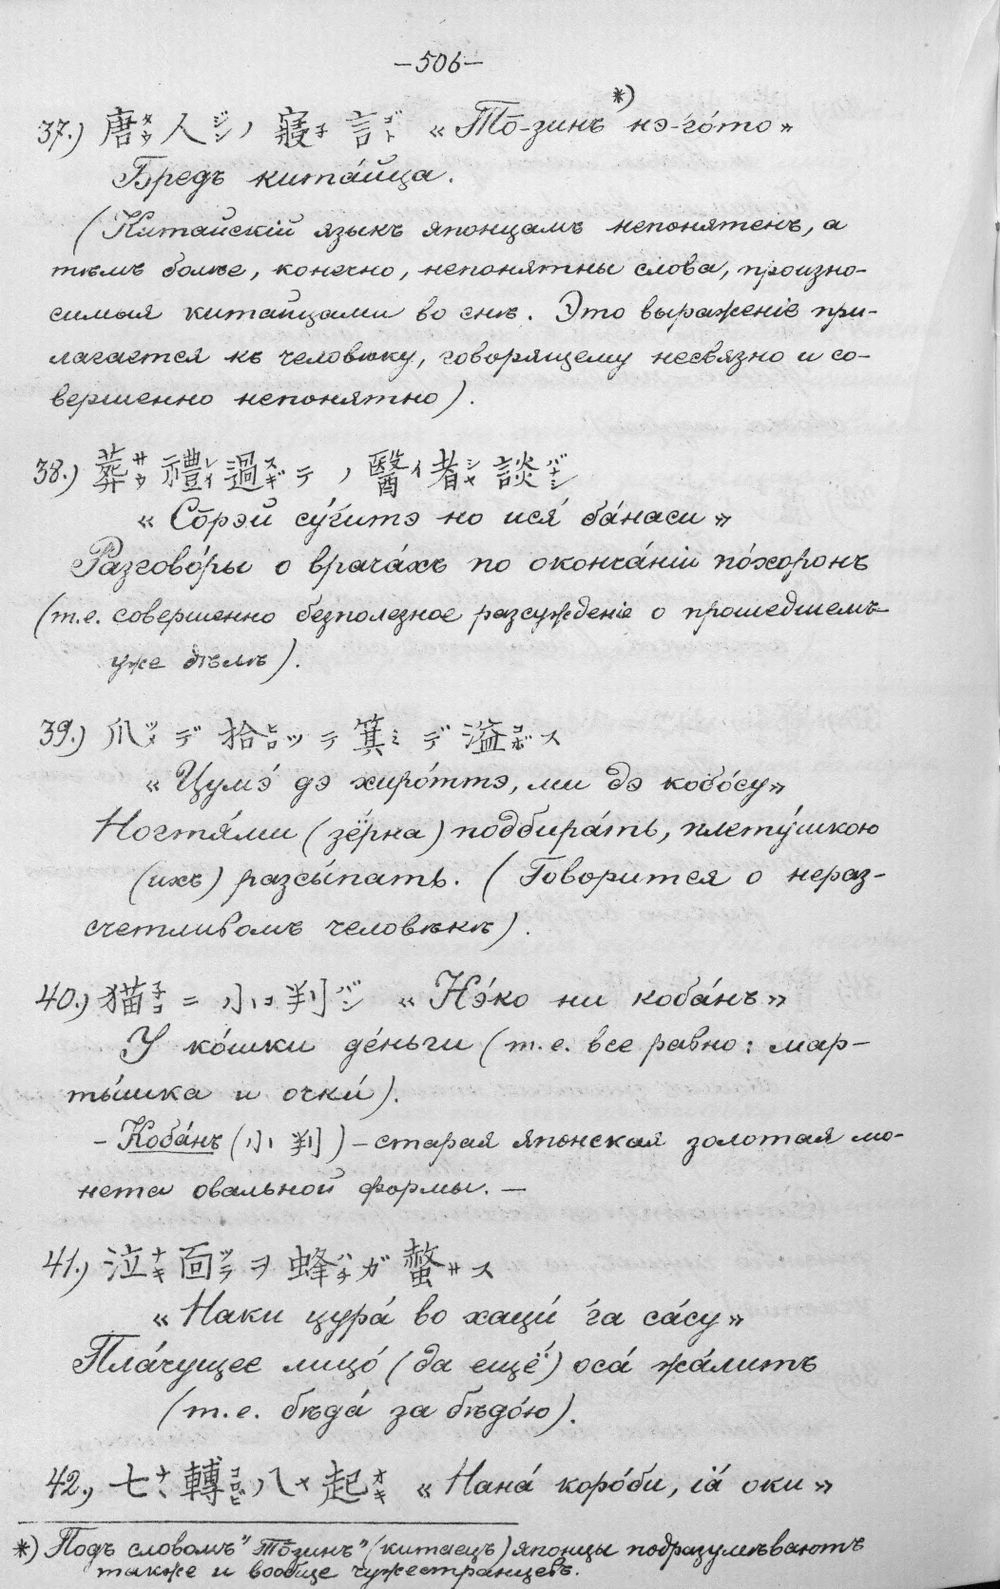 –506–
37.) 唐タウ人ジンノ寢ネ言ゴト «Тō-зинъ *) нэ-го́то»
Бредъ кита́йца.
(Китайскій языкъ японцамъ непонятенъ, а
тѣмъ болѣе, конечно, непонятны слова, произно-
симыя китайцами во снѣ. Это выраженіе при-
лагается къ человѣку, говорящему несвязно и со-
вершенно непонятно).
38.) 葬サウ禮レイ過スギテノ醫イ者シャ談バナシ
«Сōрэй су́гитэ но ися́ ба́наси»
Разгово́ры о врача́хъ по оконча́ніи по́хоронъ
(т.е. совершенно безполезное разсужденіе о прошедшемъ
уже дѣлѣ).
39.) 爪ツメデ拾ヒロッテ箕ミデ溢コボス
«Цумэ́ дэ хиро́ттэ, ми дэ кобо́су»
Ногтя́ми (зёрна) подбира́ть, плету́шкою
(ихъ) разсы́пать. (Говорится о нераз-
счетливомъ человѣкѣ).
40.) 猫ネコニ小コ判バン «Нэ́ко ни коба́нъ»
У ко́шки де́ньги (т.е. все равно: мар-
ты́шка и очки́).
– Коба́нъ (小判) – старая японская золотая мо-
нета овальной формы. –
41.) 泣ナキ面ツラヲ蜂ハチガ螫サス
«Наки цура́ во хаци́ га са́су»
Пла́чущее лицо́ (да ещё) оса́ жа́литъ
(т.е. бѣда́ за бѣдо́ю).
42.) 七ナナ轉コロビ八ヤ起オキ «Нана́ коро́би, іа́ оки»
*) Подъ словомъ "Тōзинъ" (китаецъ) японцы подразумѣваютъ
также и вообще чужестранцевъ.